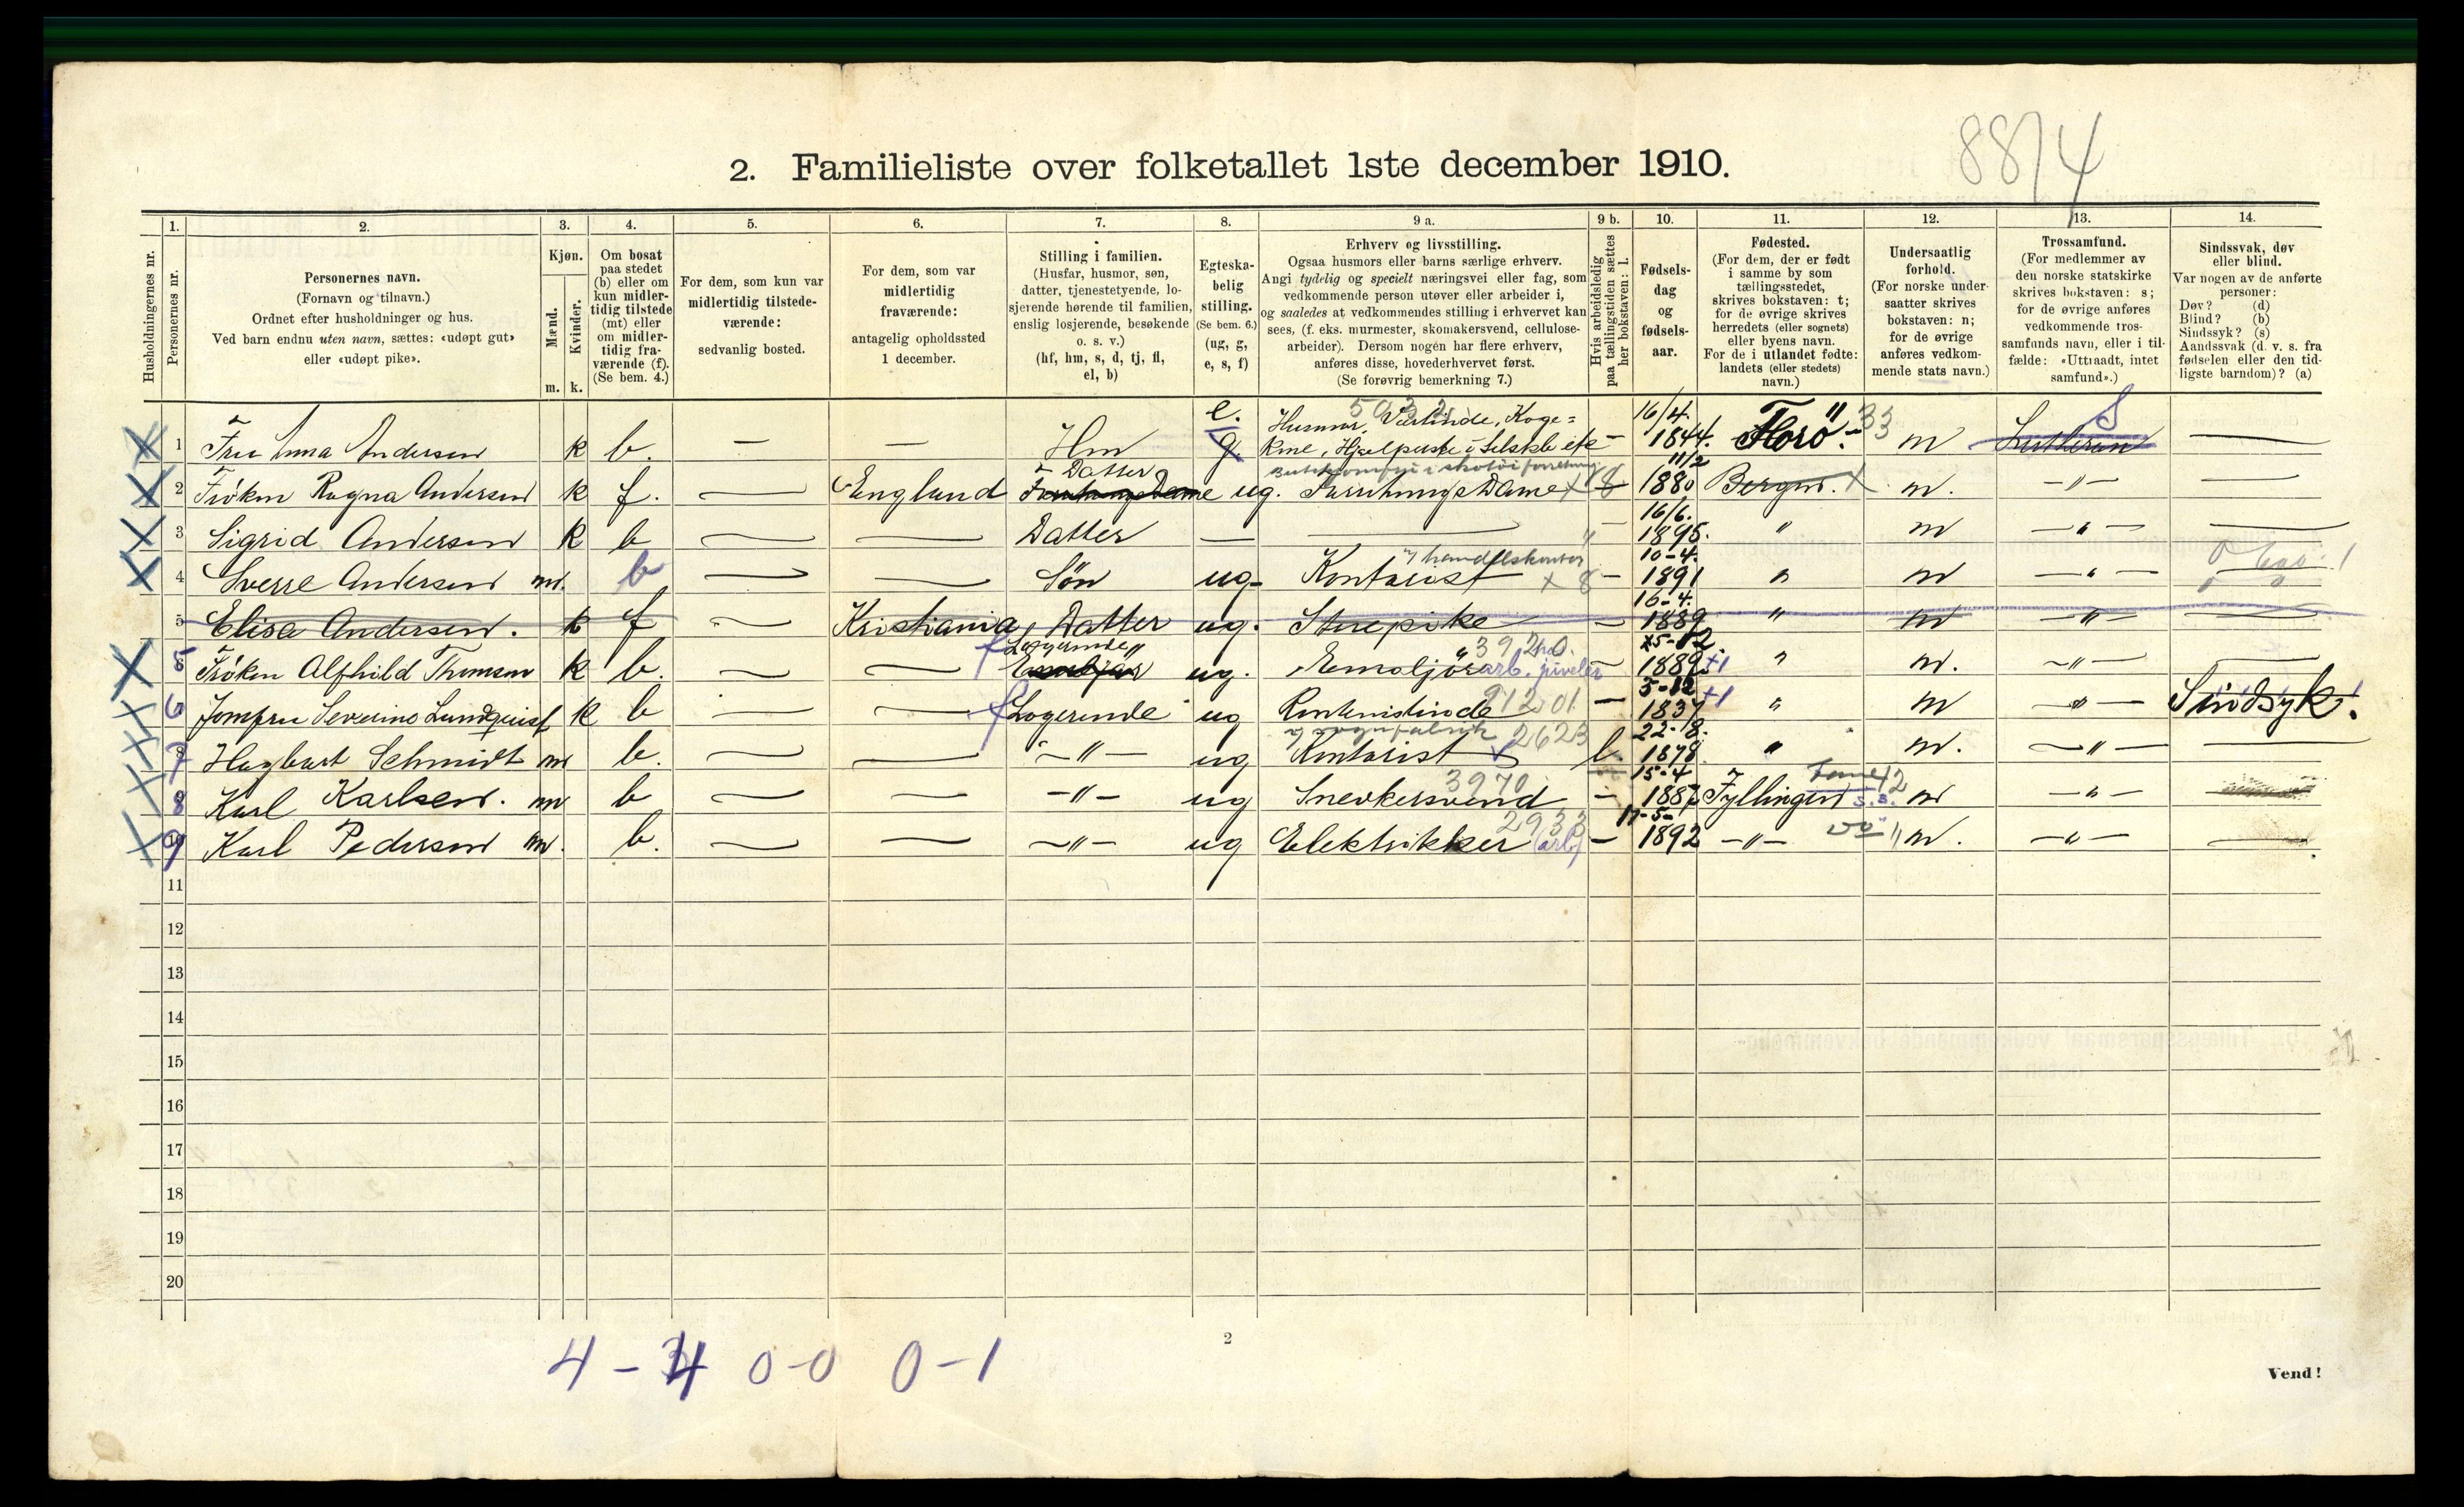 8874
2. Familieliste over folketallet 1ste december 1910.
Husholdningernes nr.
1.
Personernes nr.
2.
Personernes navn.
(Fornavn og tilnavn.)
Ordnet efter husholdninger og hus.
Ved barn endnu uten navn, sættes: «udøpt gut»
eller «udøpt pike».
3.
Kjøn.
Mænd.
Kvinder.
m. k.
4.
Om bosat
paa stedet
(b) eller om
kun midler-
tidig tilstede
(mt) eller
om midler-
tidig fra-
værende (f).
(Se bem. 4.)
5.
For dem, som kun var
midlertidig tilstede-
værende:
sedvanlig bosted.
6.
For dem, som var
midlertidig
fraværende:
antagelig opholdssted
1 december.
7.
Stilling i familien.
(Husfar, husmor, søn,
datter, tjenestetyende, lo-
sjerende hørende til familien,
enslig losjerende, besøkende
o. s. v.)
(hf, hm, s, d, tj, fl,
el, b)
8.
Egteska-
belig
stilling.
(Se bem. 6.)
(ug, g,
e, s, f)
9 a.
Erhverv og livsstilling.
Ogsaa husmors eller barns særlige erhverv.
Angi tydelig og specielt næringsvei eller fag, som
vedkommende person utøver eller arbeider i,
og saaledes at vedkommendes stilling i erhvervet kan
sees, (f. eks. murmester, skomakersvend, cellulose-
arbeider). Dersom nogen har flere erhverv,
anføres disse, hovederhvervet først.
(Se forøvrig bemerkning 7.)
9 b.
Hvis arbeidsledig
paa tællingstiden sættes
her bokstaven: l.
10.
Fødsels-
dag
og
fødsels-
aar.
11.
Fødested.
(For dem, der er født
i samme by som
tællingsstedet,
skrives bokstaven: t;
for de øvrige skrives
herredets (eller sognets)
eller byens navn.
For de i utlandet fødte:
landets (eller stedets)
navn.)
12.
Undersaatlig
forhold.
(For norske under-
saatter skrives
bokstaven: n;
for de øvrige
anføres vedkom-
mende stats navn.)
13.
Trossamfund.
(For medlemmer av
den norske statskirke
skrives bokstaven: s;
for de øvrige anføres
vedkommende tros-
samfunds navn, eller i til-
fælde: «Uttraadt, intet
samfund».)
14.
Sindssvak, døv
eller blind.
Var nogen av de anførte
personer:
Døv? (d)
Blind? (b)
Sindssyk? (s)
Aandssvak (d. v. s. fra
fødselen eller den tid-
ligste barndom)? (a)
e. Husmor, Værtinde, Koge= 16/4. " 33 S
1 Fru Anna Andersen k b. — — Hm g. kone, i Selskb etc — 1844. Florö. n Lutheran —
Datter 11/2
2 Fröken Ragna Andersen k f. — England ForretningsDame ug. ForretningsDame × 8 1880 Bergen. × n. —"— —
16/6.
3 Sigrid Andersen k b — — Datter — — — 1895. " n —"— —
i handelskontor 10-4.
4 Sverre Andersen m. b — — Sön ug Kontorist × 8 — 1891 " n —"—
16-4.
5 Elisa Andersen. k f — Kristiania, Datter ug. Stuepike — 1889 " n —"— —
Logerende 25-12.
5 Fröken Alfhild Thomsen k b. — — ug. Emaljörarb. juveler — 1889 +1 " n. —"— —
5-12
6 Jomfru Severine Lundquist k b — — Logerende ug Rentenistinde 1201 — 1837 +1 " n —"— Sindsyk.
2623 22-8.
7 Hagbart Schmidt m b. — — —"— ug Kontorist l. 1878 " n. —"— —
3970 15-4 12
8 Karl Karlsen. m b — — —"— ug Snedkersvend — 1887 Fyllingen S.B. n —"—
2933 17-5-
9 Karl Pedersen m. b. — — —"— ug Elektrikker (arb) — 1892 —"— do " n. —"— —
11
12
13
14
15
16
17
18
19
20
4 - 4 0-0 0-1
2
Vend!